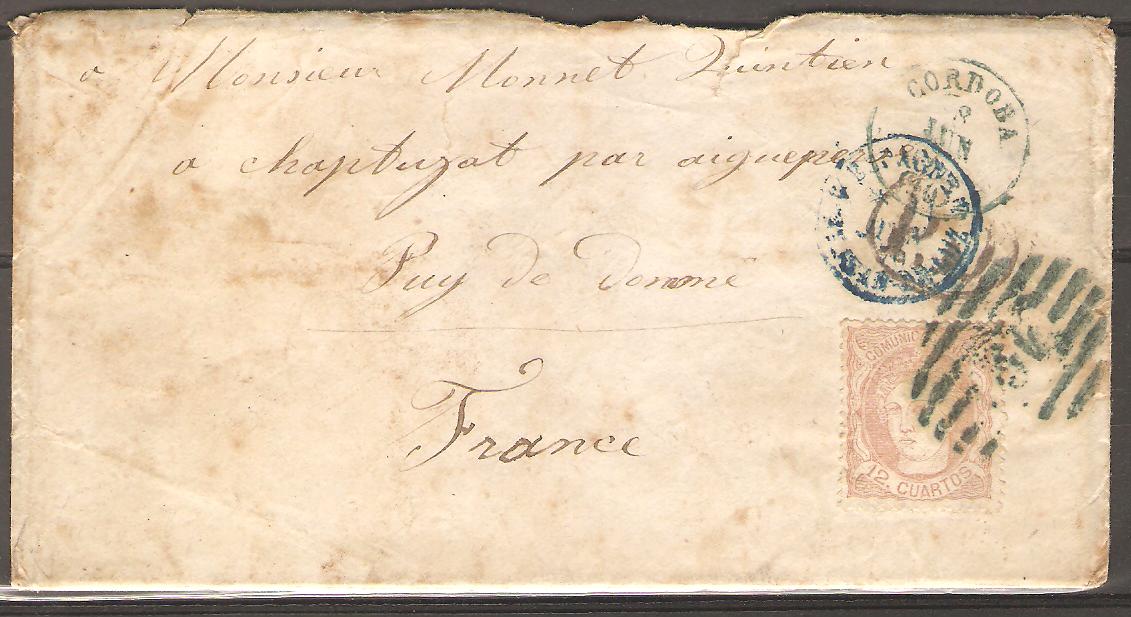 a Monsieur Monnet Quintien
a chaptuzat par aigueperse
Puy de dome
France
CORDOBA
8
JUN
ESPAGNE
JUIN
COMUNIC
12 CUARTOS